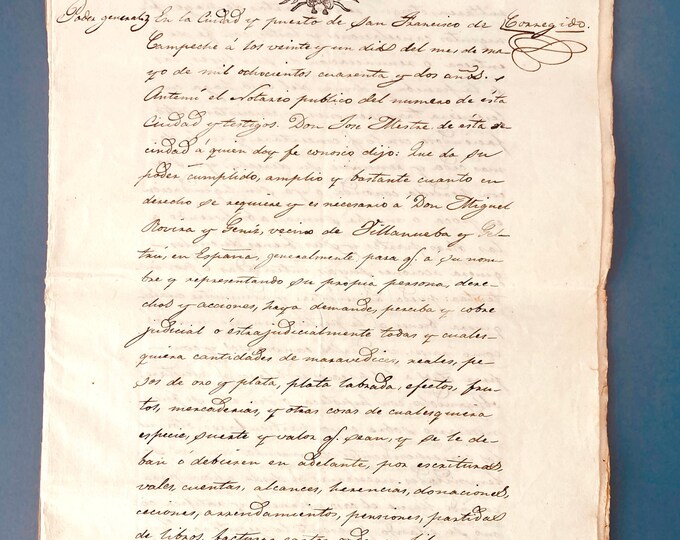 Poder general En la Ciudad y puerto de San Francisco de Corregido.
Campeche á los veinte y un dias del mes de ma-
yo de mil ochocientos cuarenta y dos años.
Antemi el Notario publico del numero de ésta
Ciudad y testigos. Don José Mestre de ésta ve-
cindad á quien doy fe conosco dijo: Que da su
poder cumplido, amplio y bastante cuanto en
derecho se requiere y es necesario á Don Miguel
Rovira y Genér, vecino de Villanueba y Gel-
trú, en España, generalmente para q. á su nom-
bre y representando su propia persona, dere-
chos y acciones, haya demandes, perciba y cobre
judicial ó éstrajudicialmente todas y cuales-
quiera cantidades de maravedices, reales, pe-
sos de oro y plata, plata labrada, efectos, fru-
tos, mercaderias, y otras cosas de cualesquiera
especie, suerte y valor q. sean, y se le de-
ban ó debieren en adelante, por escrituras,
vales, cuentas, alcances, herencias, donaciones,
ceciones, arrendamientos, pensiones, partidas
de libros, facturas